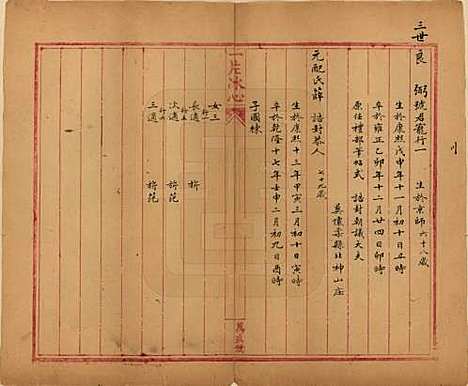 三世良 弼號君寵行一 生於京師 六十八歲
生於康熙戊申年十一月初十日丑時
卒於雍正乙卯年十二月廿四日卯時
原任禮部筆帖式 誥封朝議大夫
葬懷柔縣北神山庄
元配氏薛 誥封恭人 七十九歲
生於康熙十三年甲寅三月初十日寅時
卒於乾隆十七年壬申二月初九日酉時
子國棟
一片冰心
女三
長適
次適
三適